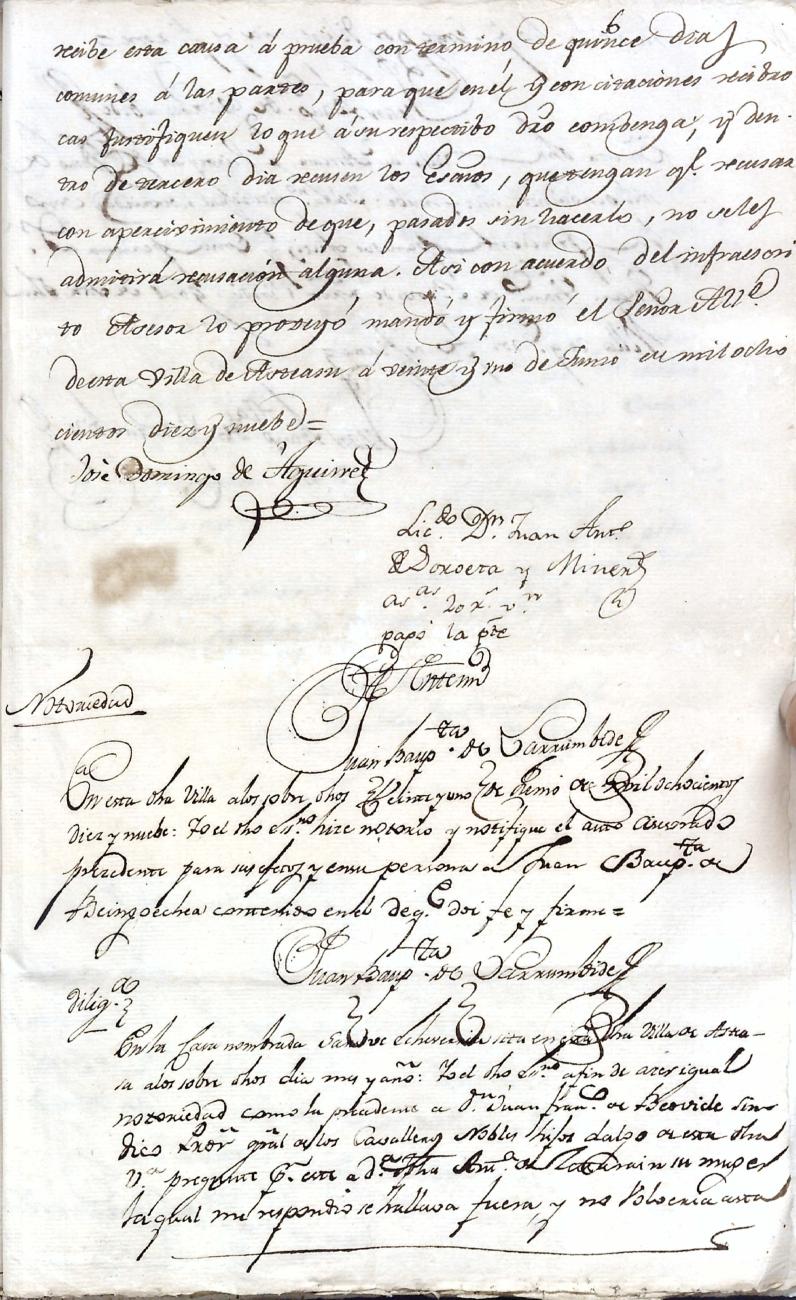 recibe esta causa á prueba con termino de quince dias
comunes á las partes, para que en él y con citaciones recibro
cas justifiquen lo que á su respectibo dró combenga, y den-
tro de tercero dia recusen los Esnos, que tengan qe. recusar
con apercivimiento de que, pasados sin hacerlo, no se les
admitirá recusación alguna. Asi con acuerdo del infraescri
to Asesor lo proveyó mandó y firmó el Señor Alle
de esta Villa de Asteasu á veinte y uno de Junio de mil ocho
cientos diez y nuebe=
José Domingo de Aguirre
Licdo. Dn. Juan Anto
de Doroeta y Miner
asas. 20 rs. vn
pagó la pte
Ante mi
Notoriedad
Juan Baupta. de Larrumbide
En esta dha Villa a los sobre dhos Veinte y uno de Junio de Mil ochocientos
diez y nuebe: Yo el dho Esno. hize notorio y notifique el auto asesorado
precedente para sus efectos y en su persona a Juan Baupta. de
Beingoechea contenido en el de qe. doi fe y firme=
Juan Baupta. de Larrumbide
diliga.
En la Casa nombrada sita en esta dha Villa de Astea-
su a los sobre dhos dia mes y año: Yo el dho Esno. a fin de azer igual
notoriedad como la precedente a Dn. Juan Franco. de Beovide Sin-
dico Pror. gral de los Cavalleros Nobles hijos dalgo de esta dha
Va. pregunte pr. este a Da. Anta. de Larrain su muger
la qual me respondio se hallava fuera, y no volveria asta